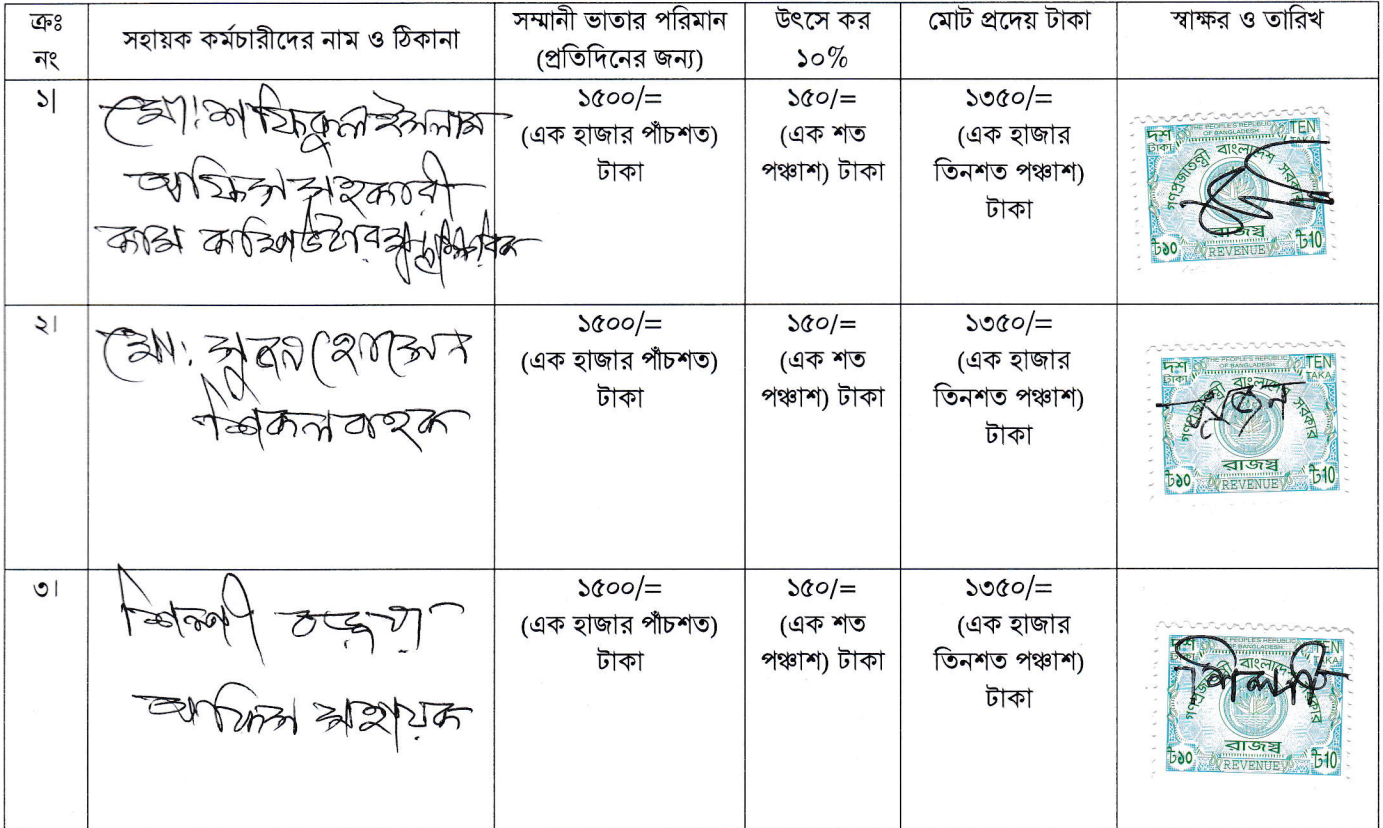 ক্রঃ নং
সহায়ক কর্মচারীদের নাম ও ঠিকানা
সম্মানী ভাতার পরিমান
(প্রতিদিনের জন্য)
উৎসে কর
১০%
মোট প্রদেয় টাকা
স্বাক্ষর ও তারিখ
১|
মো: শফিকুল ইসলাম
অফিস সহকারী
কাম কম্পিউটার মুদ্রাক্ষরিক
১৫০০/=
(এক হাজার পাঁচশত)
টাকা
১৫০/=
(এক শত
পঞ্চাশ) টাকা
১৩৫০/=
(এক হাজার
তিনশত পঞ্চাশ)
টাকা
দশ টাকা
THE PEOPLE'S REPUBLIC OF BANGLADESH
TEN TAKA
গণপ্রজাতন্ত্রী বাংলাদেশ সরকার
রাজস্ব
৳১০ REVENUE ৳10
২|
মো: সুবন হোসেন
শিকলবাহক
১৫০০/=
(এক হাজার পাঁচশত)
টাকা
১৫০/=
(এক শত
পঞ্চাশ) টাকা
১৩৫০/=
(এক হাজার
তিনশত পঞ্চাশ)
টাকা
দশ টাকা
THE PEOPLE'S REPUBLIC OF BANGLADESH
TEN TAKA
গণপ্রজাতন্ত্রী বাংলাদেশ সরকার
রাজস্ব
৳১০ REVENUE ৳10
৩|
শিল্পী
অফিস সহায়ক
১৫০০/=
(এক হাজার পাঁচশত)
টাকা
১৫০/=
(এক শত
পঞ্চাশ) টাকা
১৩৫০/=
(এক হাজার
তিনশত পঞ্চাশ)
টাকা
দশ টাকা
PEOPLE'S REPUBLIC OF BANGLADESH
TEN TAKA
গণপ্রজাতন্ত্রী বাংলাদেশ সরকার
রাজস্ব
৳১০ REVENUE ৳10